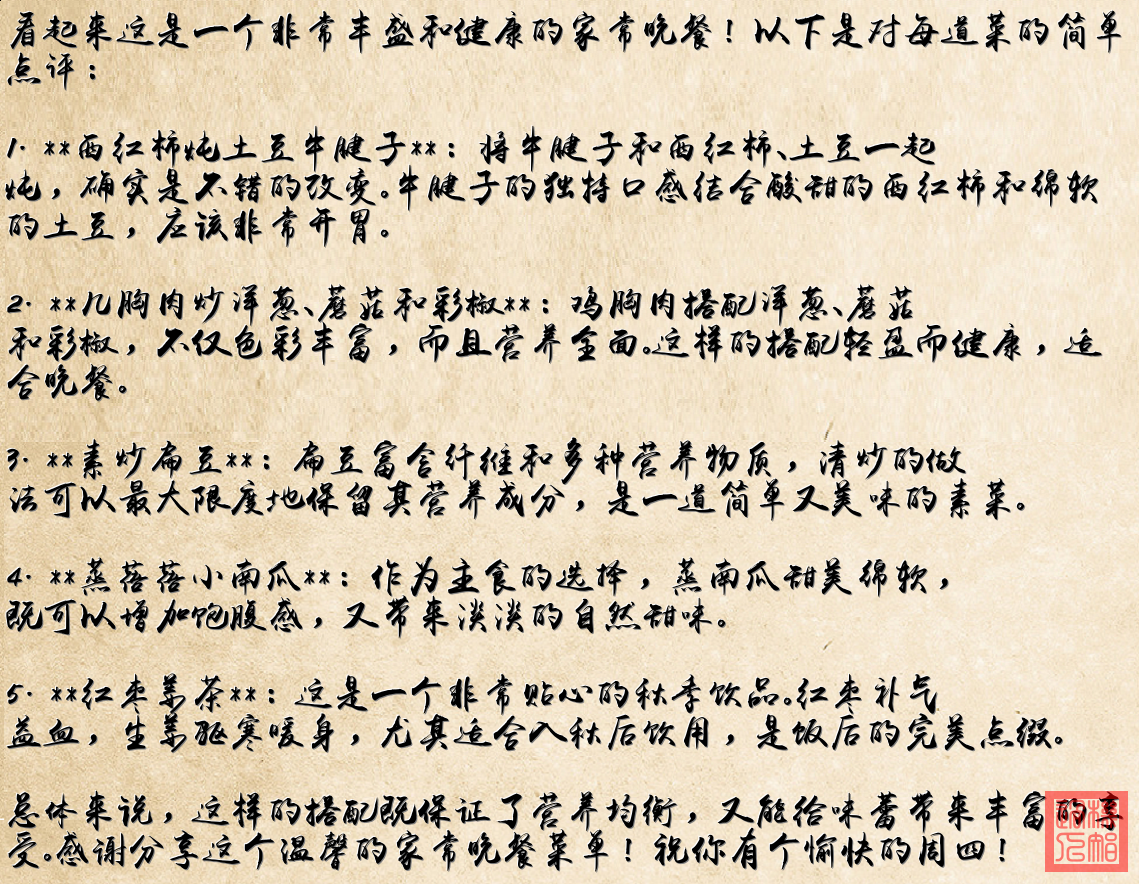 看起来这是一个非常丰盛和健康的家常晚餐！以下是对每道菜的简单
点评：
1. **西红柿炖土豆牛腱子**：将牛腱子和西红柿、土豆一起
炖，确实是不错的改变。牛腱子的独特口感结合酸甜的西红柿和绵软
的土豆，应该非常开胃。
2. **几胸肉炒洋葱、蘑菇和彩椒**：鸡胸肉搭配洋葱、蘑菇
和彩椒，不仅色彩丰富，而且营养全面。这样的搭配轻盈而健康，适
合晚餐。
3. **素炒扁豆**：扁豆富含纤维和多种营养物质，清炒的做
法可以最大限度地保留其营养成分，是一道简单又美味的素菜。
4. **蒸蓓蓓小南瓜**：作为主食的选择，蒸南瓜甜美绵软，
既可以增加饱腹感，又带来淡淡的自然甜味。
5. **红枣姜茶**：这是一个非常贴心的秋季饮品。红枣补气
益血，生姜驱寒暖身，尤其适合入秋后饮用，是饭后的完美点缀。
总体来说，这样的搭配既保证了营养均衡，又能给味蕾带来丰富的享
受。感谢分享这个温馨的家常晚餐菜单！祝你有个愉快的周四！